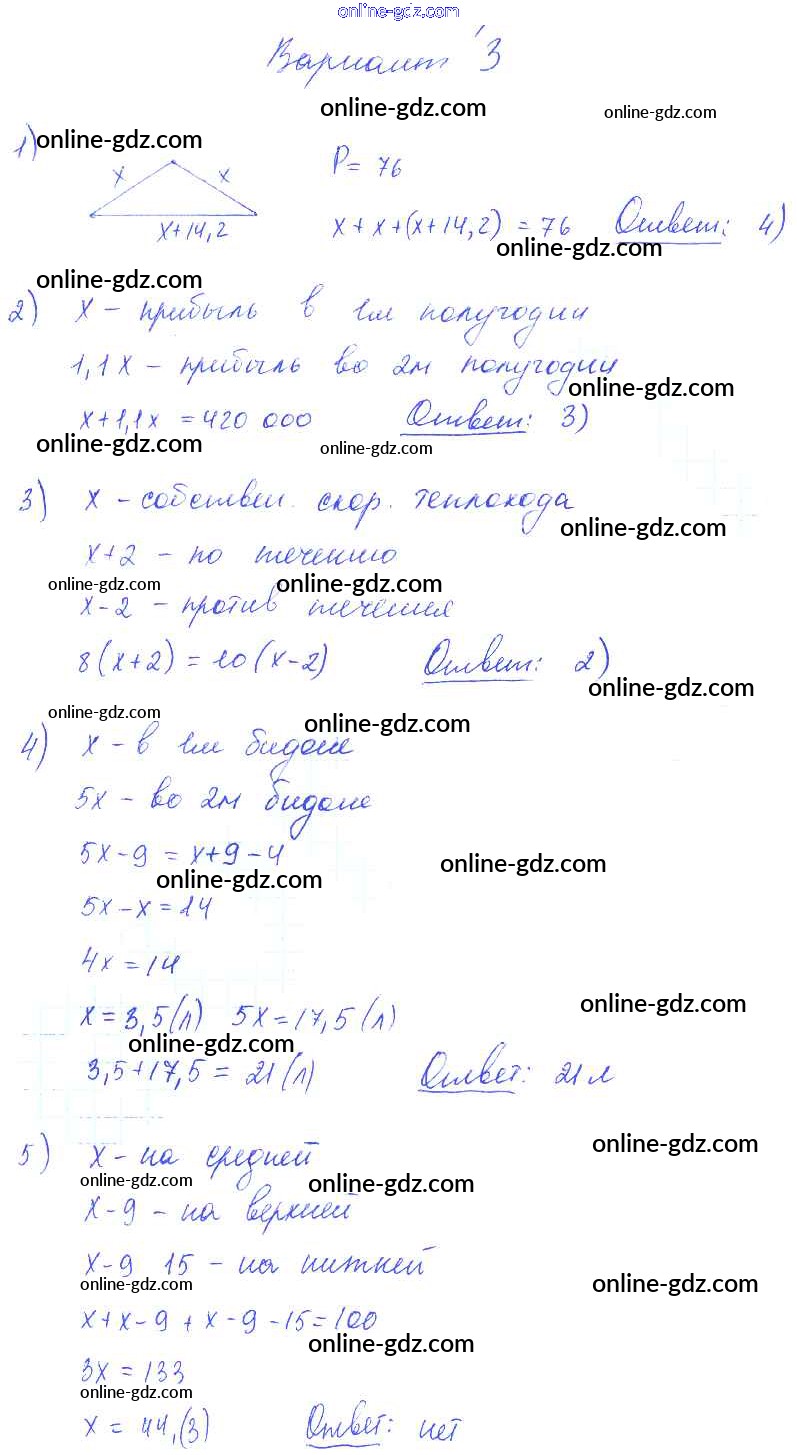 online-gdz.com
Вариант 3
online-gdz.com online-gdz.com
1) online-gdz.com
x x P = 76
x+14,2 x + x + (x + 14,2) = 76 Ответ: 4)
online-gdz.com
online-gdz.com
2) x – прибыль в 1м полугодии
1,1x – прибыль во 2м полугодии
online-gdz.com
x + 1,1x = 420 000 Ответ: 3)
online-gdz.com online-gdz.com
3) x – собствен. скор. теплохода
online-gdz.com
x+2 – по течению
online-gdz.com online-gdz.com
x-2 – против течения
8(x+2) = 10(x-2) Ответ: 2)
online-gdz.com
online-gdz.com online-gdz.com
4) x – в 1м бидоне
5x – во 2м бидоне
5x - 9 = x + 9 - 4
online-gdz.com online-gdz.com
5x - x = 14
4x = 14
online-gdz.com
x = 3,5 (л) 5x = 17,5 (л)
online-gdz.com
3,5 + 17,5 = 21 (л) Ответ: 21 л
online-gdz.com
5) x – на средней
online-gdz.com online-gdz.com
x-9 – на верхней
x-9 15 – на нижней
online-gdz.com online-gdz.com
x + x - 9 + x - 9 - 15 = 100
online-gdz.com
3x = 133
online-gdz.com
x = 44,(3) Ответ: нет